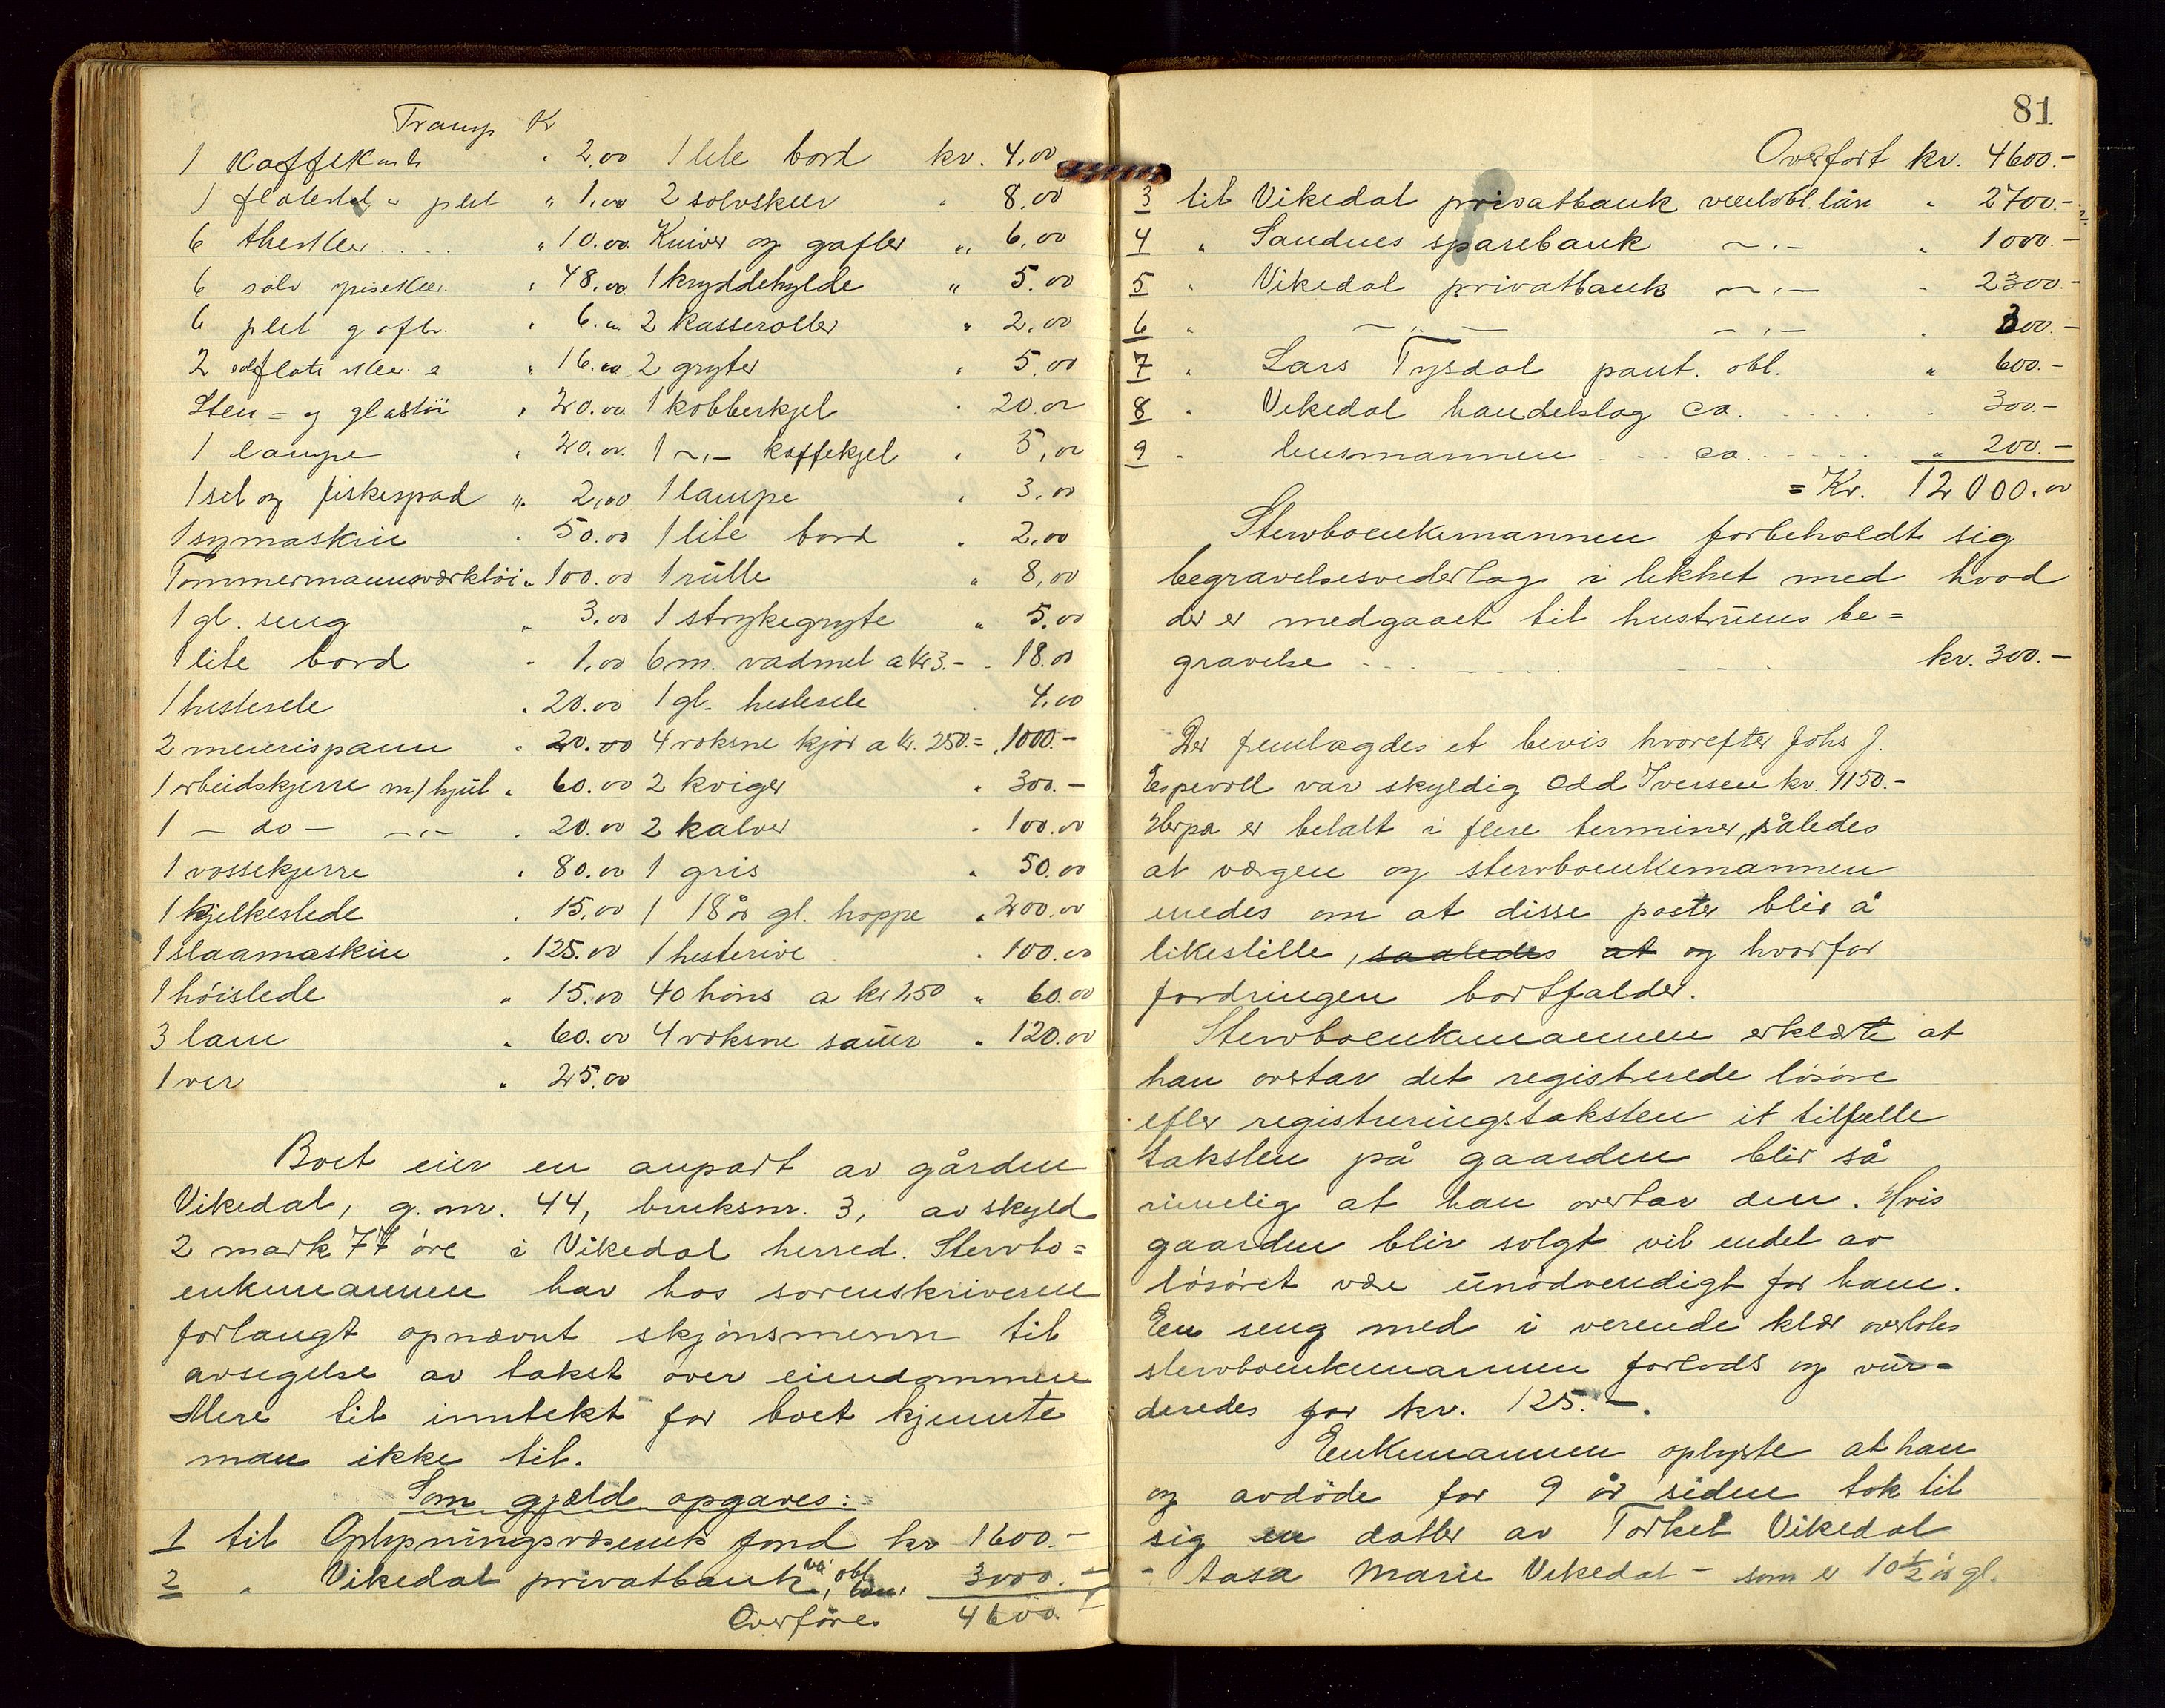 Transp Kr
1 Kaffekande " 2,00 1 lite bord kr. 4,00
1 fløteskål " plet " 1,00 2 sølvskeer " 8,00
6 theskeer .... " 10.00 Kniver og gafler " 6,00
6 sølv spiseskeer " 48,00 1 kryddehylde " 5.00
6 plet gafler " 6.00 2 kasseroller " 2,00
2 sølvfløte skeer a " 16.00 2 gryter " 5,00
Sten = og glastøi " 20.00 1 kobberkjel " 20.00
1 lampe " 20.00 1 ~"~ kaffekjel " 5,00
1 sil og fiskespad " 2,00 1 lampe " 3,00
1 symaskin " 50.00 1 lite bord " 2,00
Tømmermannsværktøi " 100.00 1 rulle " 8,00
1 gl. seng " 3,00 1 strykegryte " 5,00
1 lite bord " 1,00 6 m. vadmel a kr 3.- " 18.00
1 hestesele " 20.00 1 gl. hestesele " 4,00
2 meierispann " 20.00 4 voksne kjør a kr. 250.= " 1000.-
1 arbeidskjerre m/hjul " 60.00 2 kviger " 300.-
1 - do - ~"~ " 20.00 2 kalver " 100.00
1 vossekjerre " 80.00 1 gris " 50.00
1 kjelkeslede " 15,00 1 18 år gl. hoppe " 200.00
1 slaamaskin " 125.00 1 hesterive " 100.00
1 høislede " 15.00 40 høns a kr 1,50 " 60.00
3 lam " 60.00 4 voksne sauer " 120.00
1 ver " 25.00
Boet eier en anpart av gården
Vikedal, g.nr. 44, bruksnr. 3, av skyld
2 mark 77 øre i Vikedal herred. Stervbo=
enkemannen har hos sorenskriveren
forlangt opnævnt skjønsmenn til
avsigelse av takst over eiendommen
Mere til inntekt for boet kjennte
man ikke til.
Som gjæld opgaves:
1 til Oplysningsvæsenets fond kr 1600.-
2 " Vikedal privatbank, obl. lån 3000.-
Overføres 4600.-
81
Overført kr. 4600.-
3 til Vikedal privatbank vexelobl. lån " 2700.-
4 " Sandnes sparebank ~"~ " 1000.-
5 " Vikedal privatbank ~"~ " 2300.-
6 " ~"~ ~"~ " 300.-
7 " Lars Tysdal pant. obl. " 600.-
8 " Vikedal handelslag ca. .... " 300.-
9 " husmannen ... ca ..... " 200.-
= Kr. 12000.00
Stervboenkemannen forbeholdt sig
begravelsesvederlag i likhet med hvad
der er medgaaet til hustruens be=
gravelse ... kr. 300.-
Der fremlagdes et bevis hvorefter Johs J.
Espevoll var skyldig Odd Iversen kr. 1150.-
Herpa er betalt i flere terminer, således
at værgen og stervboenkemannen
enedes om at disse poster blir å
likestille, saaledes at og hvorfor
fordringen bortfalder.
Stervboenkemannen erklærte at
han overtar det registrerede løsøre
efter registreringstaksten it tilfælle
taksten på gaarden blir så
rimelig at han overtar den. Hvis
gaarden blir solgt vil endel av
løsøret være unødvendigt for ham.
Een seng med i verende klær overlotes
stervboenkemannen forlods og vur=
deredes for kr. 125.-.
Enkemannen oplyste at han
og avdøde for 9 år siden tok til
sig en datter av Torkel Vikedal
- Aasa Marie Vikedal - som er 10½ år gl.